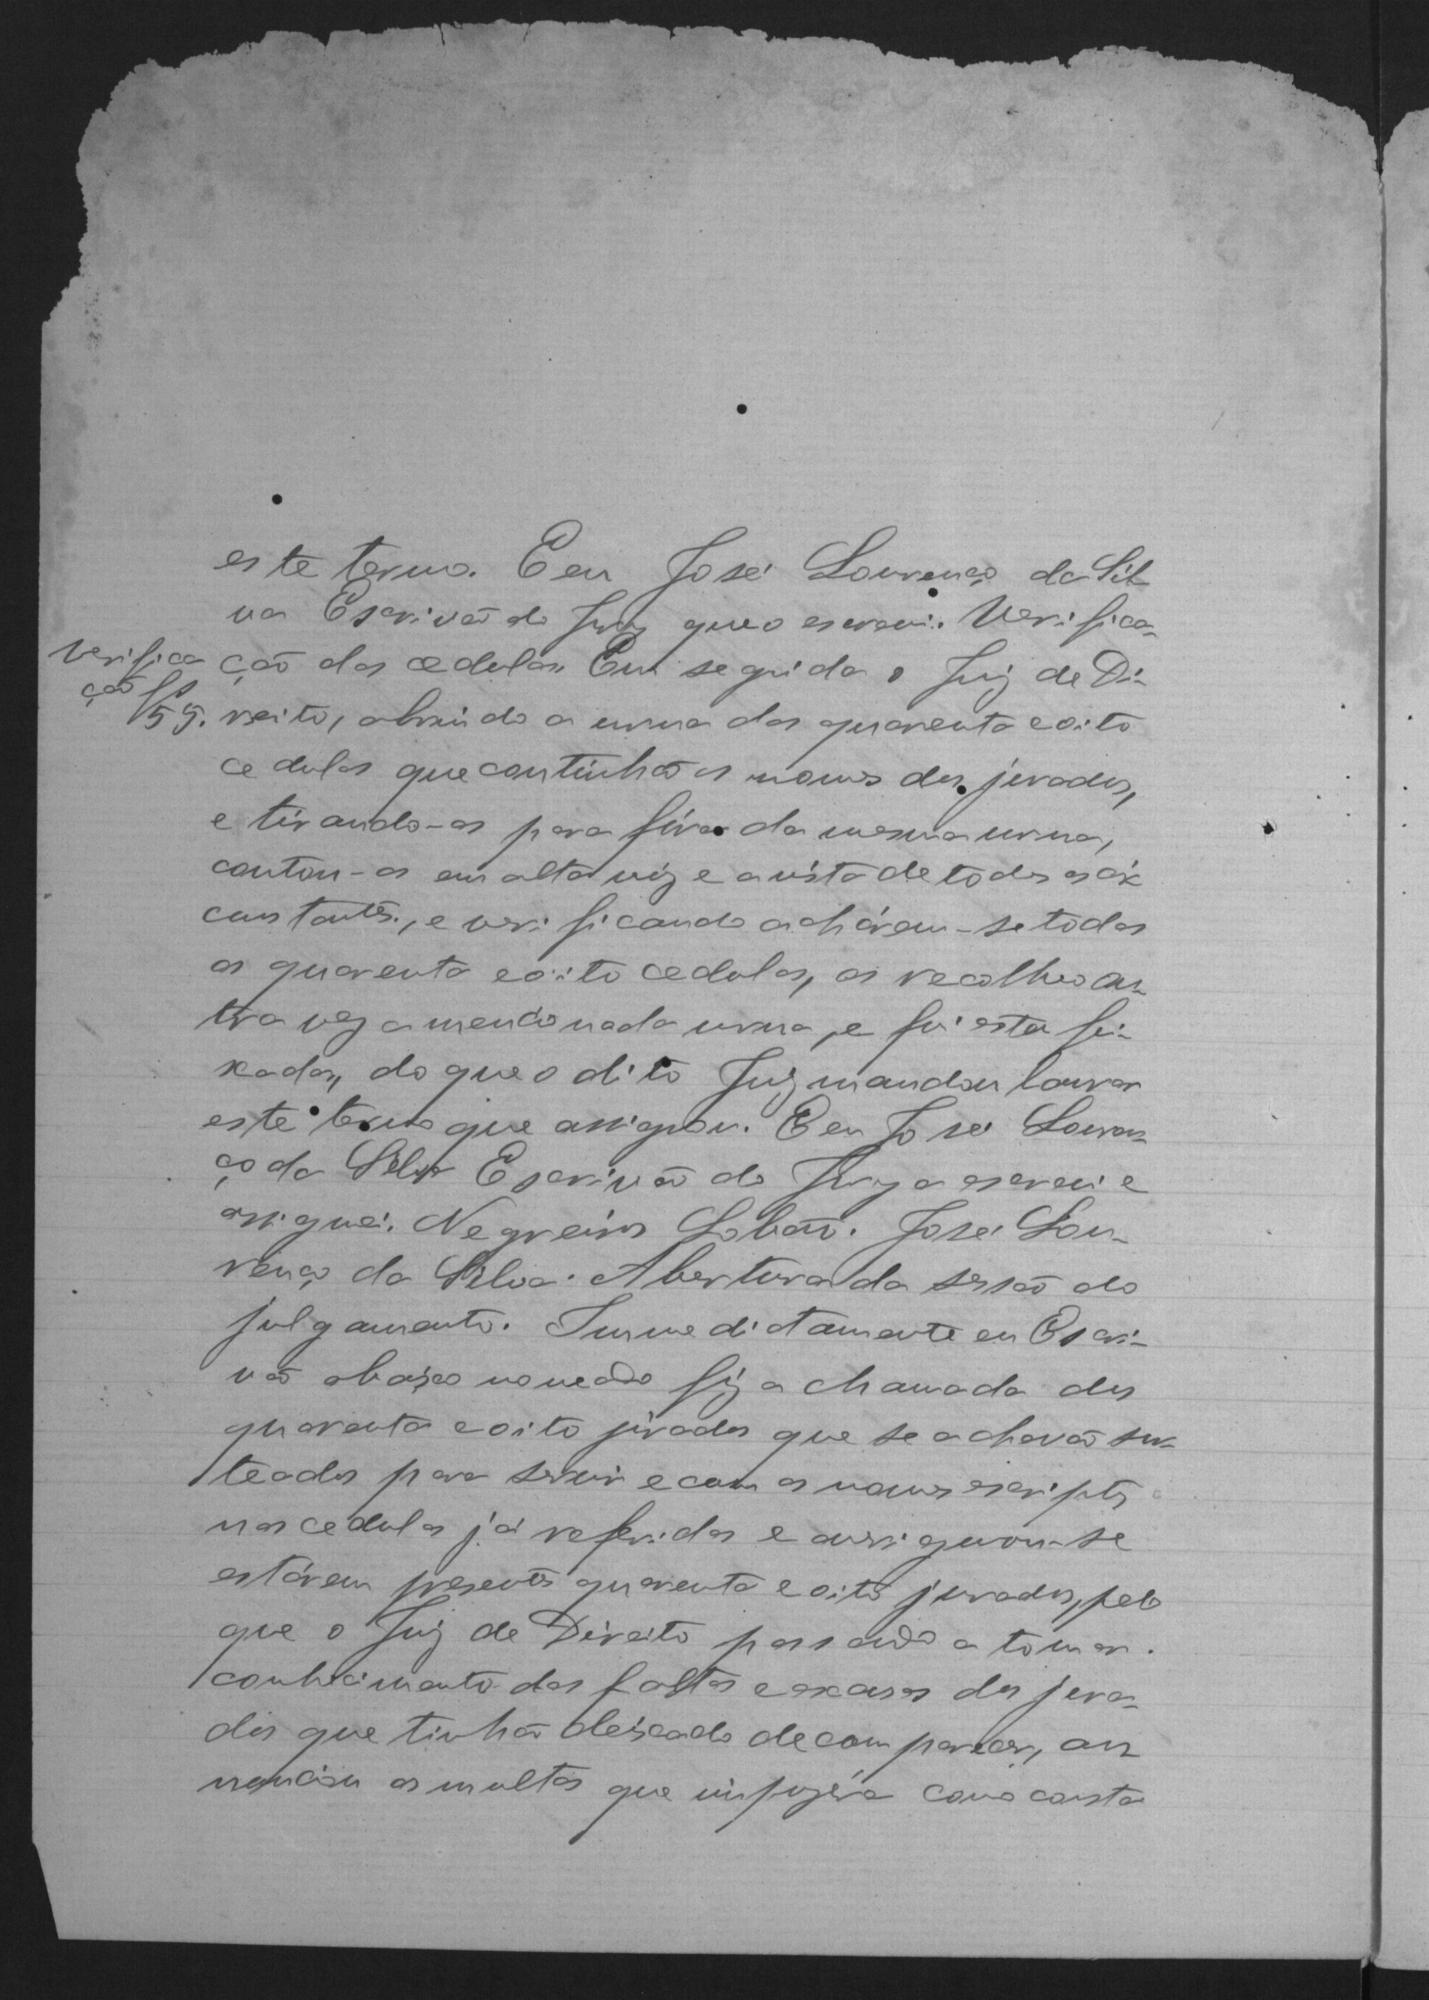 este termo. E eu José Lourenço da Sil-
va Escrivão do Jury que o escrevi. Verifica-
Verifica
ção fls
55.
ção das cedulas. Em seguida o Juiz de Di-
reito, abrindo a urna das quarenta e oito
cedulas que continhão os nomes dos jurados,
e tirando-as para fóra da mesma urna,
contou-as em alta vóz e a vista de todos os cir-
cunstantes, e verificando achárem-se todas
as quarenta e oito cedulas, as recolheo ou-
tra vez a mencionada urna, e foi esta fe-
xada, do que o dito Juiz mandou lavrar
este termo que assignou. E eu José Louren-
ço da Silva Escrivão do Jury o escrevi e
assignei. Negreiros Lobão. José Lou-
renço da Silva. Abertura da sessão do
julgamento. Immedictamente eu Escri-
vão abaixo nomeado fiz a chamada dos
quarenta e oito jurados que se achavão sor-
teados para servir e com os nomes escriptos
nas cedulas já referidas e averiguou-se
estárem presentes quarenta e oito jurados, pelo
que o Juiz de Direito passando a tomar
conhecimento das faltas e excusas dos jura-
dos que tinhão deixado de comparecer, an-
nunciou as multas que impuzéra como consta